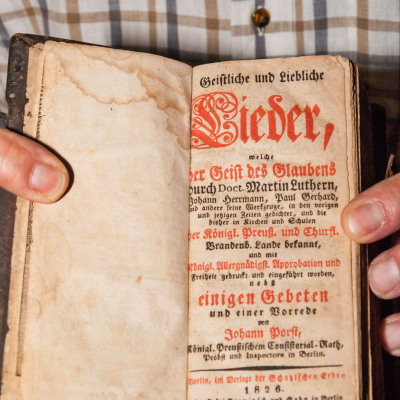 Geistliche und Liebliche
Lieder,
welche
der Geist des Glaubens
durch Doct. Martin Luthern,
Johann Herrmann, Paul Gerhard,
und andere seine Werkzeuge, in den vorigen
und jetzigen Zeiten gedichtet, und die
bisher in Kirchen und Schulen
der Königl. Preuß. und Churfl.
Brandenb. Lande bekannt,
und mit
Königl. Allergnädigst. Approbation und
Freiheit gedruckt und eingeführet worden,
nebst
einigen Gebeten
und einer Vorrede
von
Johann Porst,
Königl. Preußischem Consistorial-Rath,
Probst und Inspectore in Berlin.
Berlin, im Verlage der Schatzischen Erben
1826.
in Berlin